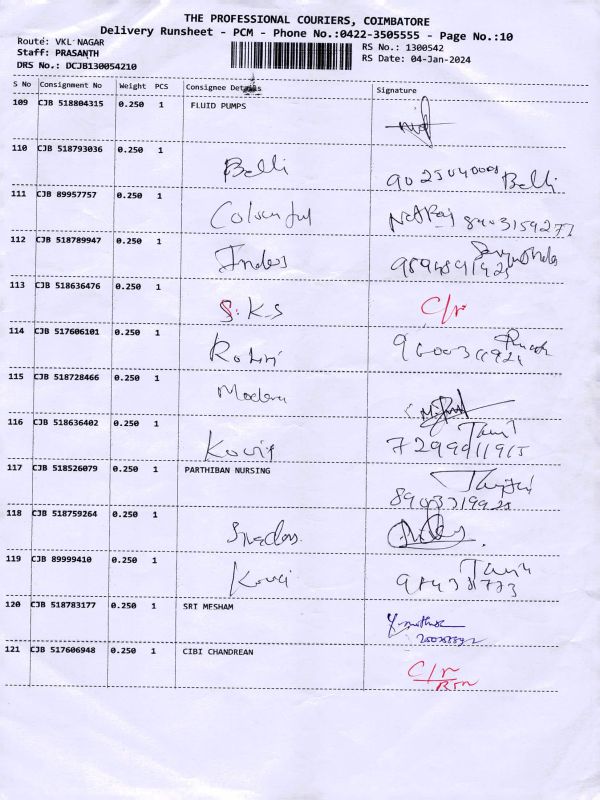 THE PROFESSIONAL COURIERS, COIMBATORE
Delivery Runsheet - PCM - Phone No.:0422-3505555 - Page No.:10
Route: VKL NAGAR
RS No.: 1300542
Staff: PRASANTH
RS Date: 04-Jan-2024
DRS No.: DCJB130054210
S No Consignment No Weight PCS Consignee Details Signature
109 CJB 518804315 0.250 1 FLUID PUMPS
110 CJB 518793036 0.250 1
Belli Belli
111 CJB 89957757 0.250 1
Colourful 8903159277
112 CJB 518789947 0.250 1
113 CJB 518636476 0.250 1
S.K.S C/r
114 CJB 517606101 0.250 1
Rohini
115 CJB 518728466 0.250 1
Modern
116 CJB 518636402 0.250 1
7299911915
117 CJB 518526079 0.250 1 PARTHIBAN NURSING
118 CJB 518759264 0.250 1
119 CJB 89999410 0.250 1
120 CJB 518783177 0.250 1 SRI MESHAM
121 CJB 517606948 0.250 1 CIBI CHANDREAN
C/r